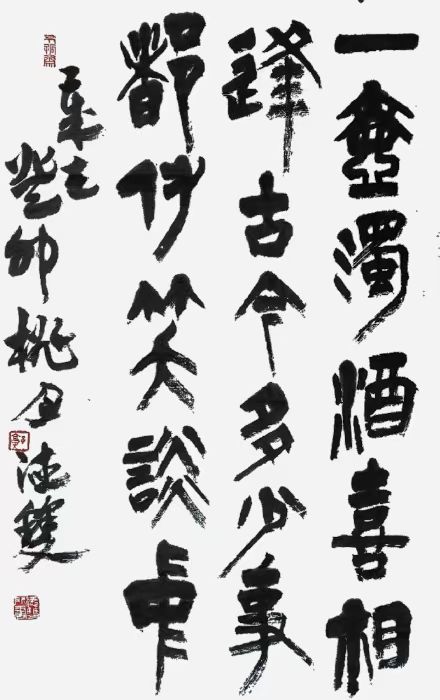 一壺濁酒喜相
逢古今多少事
都付笑談中
癸卯桃月雙